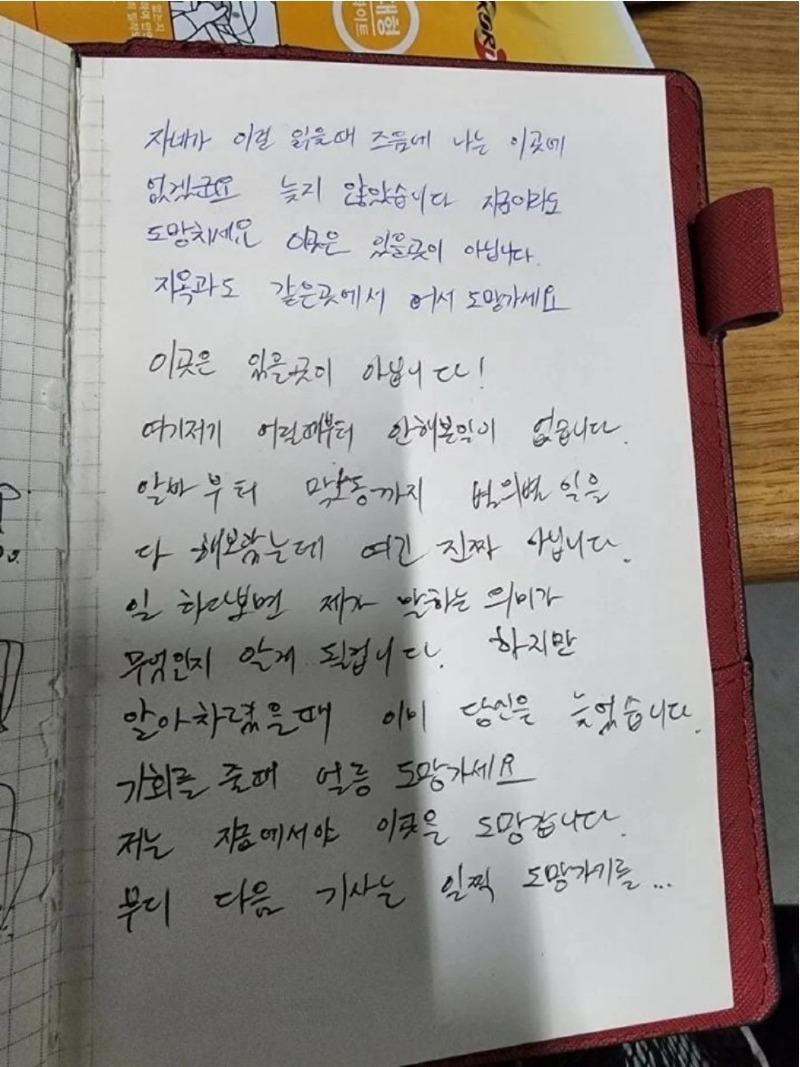 대형
KORD
자네가 이걸 읽을때 즈음에 나는 이곳에
없겠군요 늦지 않았습니다 지금이라도
도망치세요 이곳은 있을곳이 아닙니다.
지옥과도 같은곳에서 어서 도망가세요
이곳은 있을곳이 아닙니다!
여기저기 어릴때부터 안해본일이 없습니다.
알바부터 막노동까지 별의별 일을
다 해보았는데 여긴 진짜 아닙니다.
일 하다보면 제가 말하는 의미가
무엇인지 알게 될겁니다. 하지만
알아차렸을때 이미 당신은 늦었습니다.
기회를 줄때 얼릉 도망가세요
저는 지금에서야 이곳을 도망갑니다.
부디 다음 기사는 일찍 도망가기를...